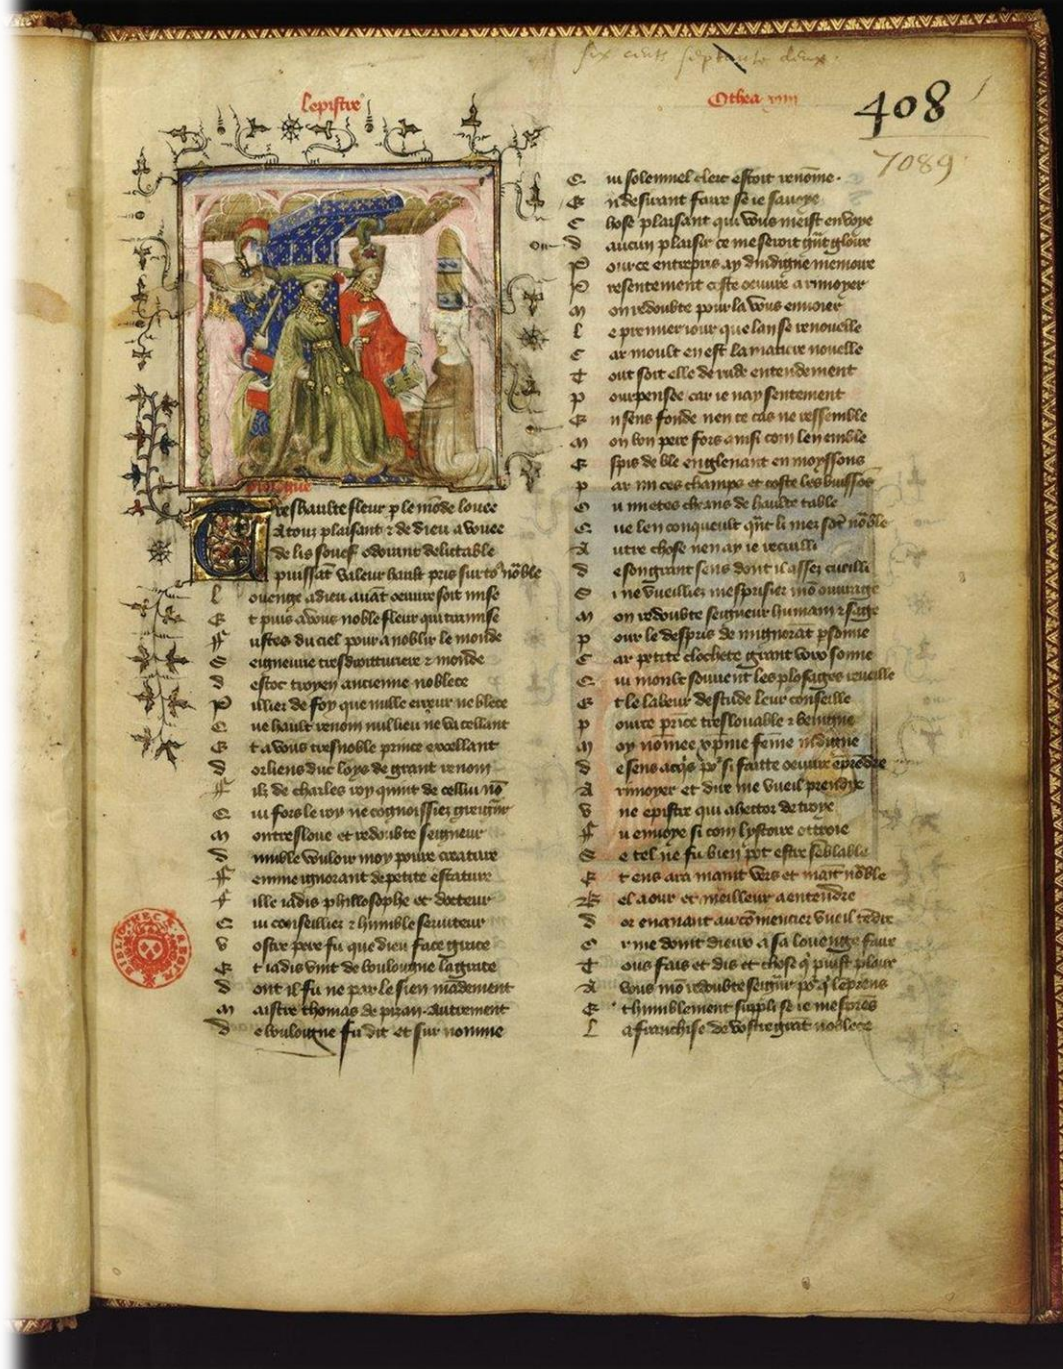 six cents septante deux
Lepistre
Othea xviii
408
7089
prologue
Treshaulte fleur p le mõde louee
A tous plaisant ⁊ de dieu avouee
de lis souef odourant delictable
puissãt valeur hault pris sur to⁹ nõble
Louenge a dieu auãt oeuure soit mise
Et puis a vous noble fleur qui tramise
Fustes du ciel pour anoblir le monde
Seigneurie tresdroitturiere ⁊ monde
destoc troyen ancienne noblece
Pillier de foy que nulle erreur ne blece
Cue hault renom nul lieu ne va cellant
Et a vous tresnoble prince excellant
dorliens duc loys de grant renom
Filz de charles roy quint de cellui nõ
Cui fors le roy ne cognoissiez greigñr
Mon tresloue et redoubte seigneur
dumble vouloir moy poure creature
Femme ignorant de petite estature
Fille iadis philosophe et docteur
Cui conseillier ⁊ humble seruiteur
Vostre pere fu que dieu face grace
Et iadis vint de boulongne la grace
dont il fu ne par le sien mãdement
Maistre thomas de pizan autrement
de boulongne fu dit et surnomme
Cui solemnel clerc estoit renõme.
En desirant faire se ie sauoye
Chose plaisant qui vous meist en voye
daucun plaisir ce me seroit grãt gloire
Pource entrepris ay dindigne memoire
Presentement ceste oeuure a rimoyer
Mon redoubte pour la vous enuoier
Le premier iour que lan se renouelle
Car moult en est la matiere nouelle
Tout soit elle de rude entendement
Pourpensee car ie nay sentement
En sens fonde nen ce cas ne ressemble
Mon bon pere fors ainsi com len emble
Espis de ble en glenant en moyssons
Par mi ces champs et coste les buissõs
Ou mietes cheans de haulte table
Cue len conqueult quãt li mez sõt nõble
Autre chose nen ay ie recuilli
de son grant sens dont il assez cueilli
Si ne vueilliez mesprisier mõ ouurage
Mon redoubte seigneur humain ⁊ sage
Pour le despris de mignorãt psonne
Car petite clochete grant voix sonne
Cui moult souuent les plus sages reueille
Et le labeur destude leur conseille
Pource prĩce tresloua​ble ⁊ benigne
Moy nõmee xpine fẽme ĩdigne
de sens acq̃s po⁹ si faitte oeuure ẽprẽdre
A rimoyer et dire me vueil prendre
Vne epistre qui a hector de troye
Fu enuoye si com lystoire ottroie
Se tel ne fu bien pot estre sẽblable
Et ens ara maint vers et maĩt nõble
Bel a oir et meilleur a entendre
dor en auant au cõmencier vueil tẽdre
Or me doint dieux a sa louenge faire
Tous fais et dis et chose q̃ puist plaire
A vous mõ redoubte seigñr po⁹ q̃ lẽprens
Et humblement suppli se ie mesprẽs
La franchise de vostre grãt noblece
BIBLIOTHECÆ REGIÆ